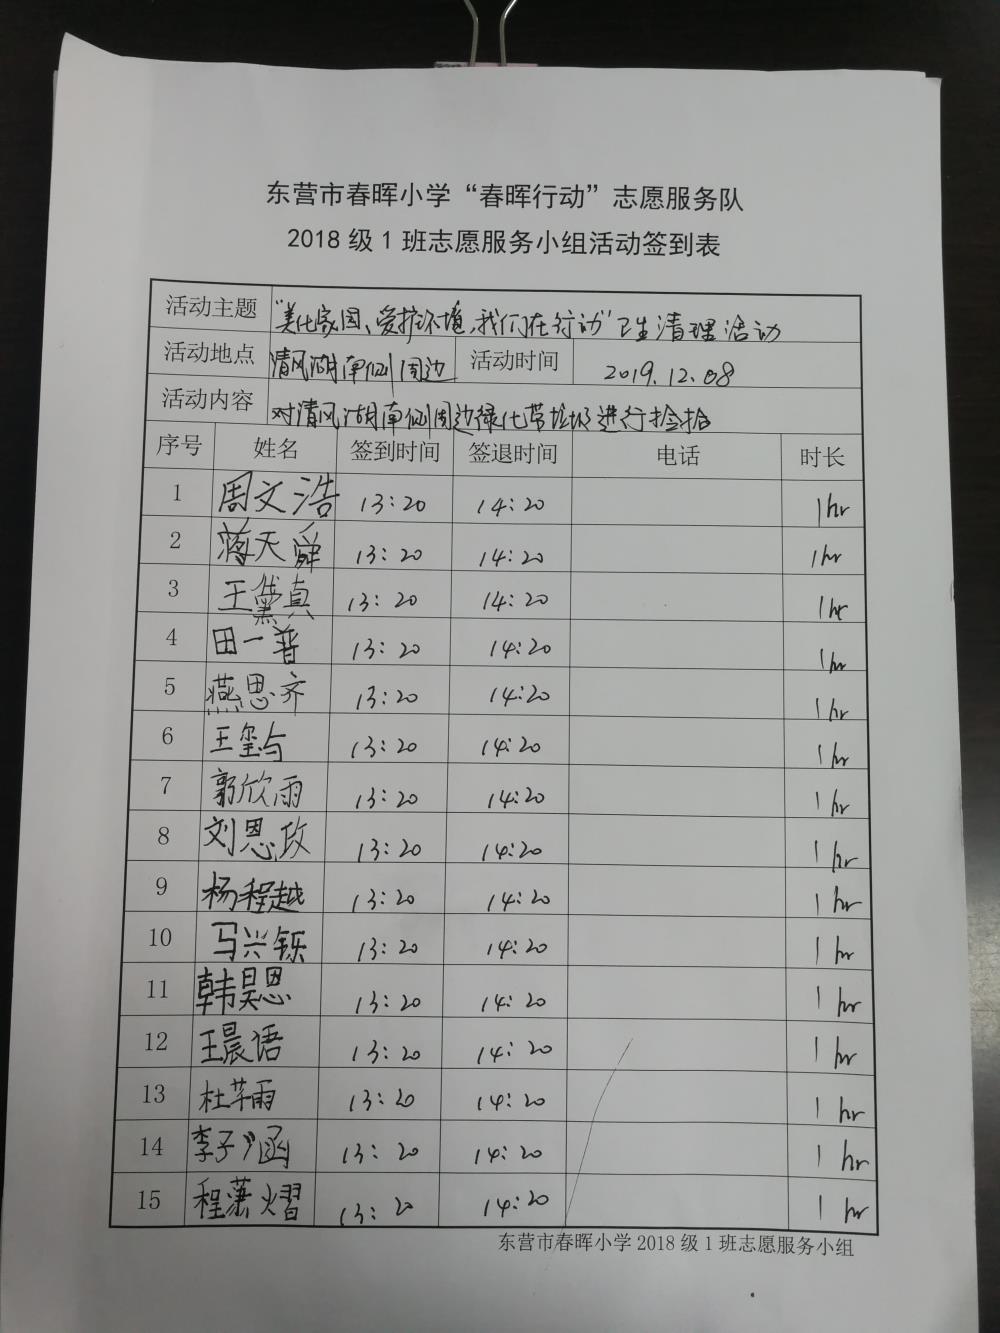 东营市春晖小学“春晖行动”志愿服务队
2018 级 1 班志愿服务小组活动签到表
活动主题 “美化家园、爱护环境,我们在行动”卫生清理活动
活动地点 清风湖南侧周边 活动时间 2019.12.08
活动内容 对清风湖南侧周边绿化带垃圾进行捡拾
序号 姓名 签到时间 签退时间 电话 时长
1 周文浩 13:20 14:20 1hr
2 蒋天舜 13:20 14:20 1hr
3 王黛真 13:20 14:20 1hr
4 田一普 13:20 14:20 1hr
5 燕思齐 13:20 14:20 1hr
6 王玺与 13:20 14:20 1hr
7 郭欣雨 13:20 14:20 1hr
8 刘恩政 13:20 14:20 1hr
9 杨程越 13:20 14:20 1hr
10 马兴铄 13:20 14:20 1hr
11 韩昊恩 13:20 14:20 1hr
12 王晨语 13:20 14:20 1hr
13 杜芊雨 13:20 14:20 1hr
14 李子涵 13:20 14:20 1hr
15 程潇熠 13:20 14:20 1hr
东营市春晖小学 2018 级 1 班志愿服务小组